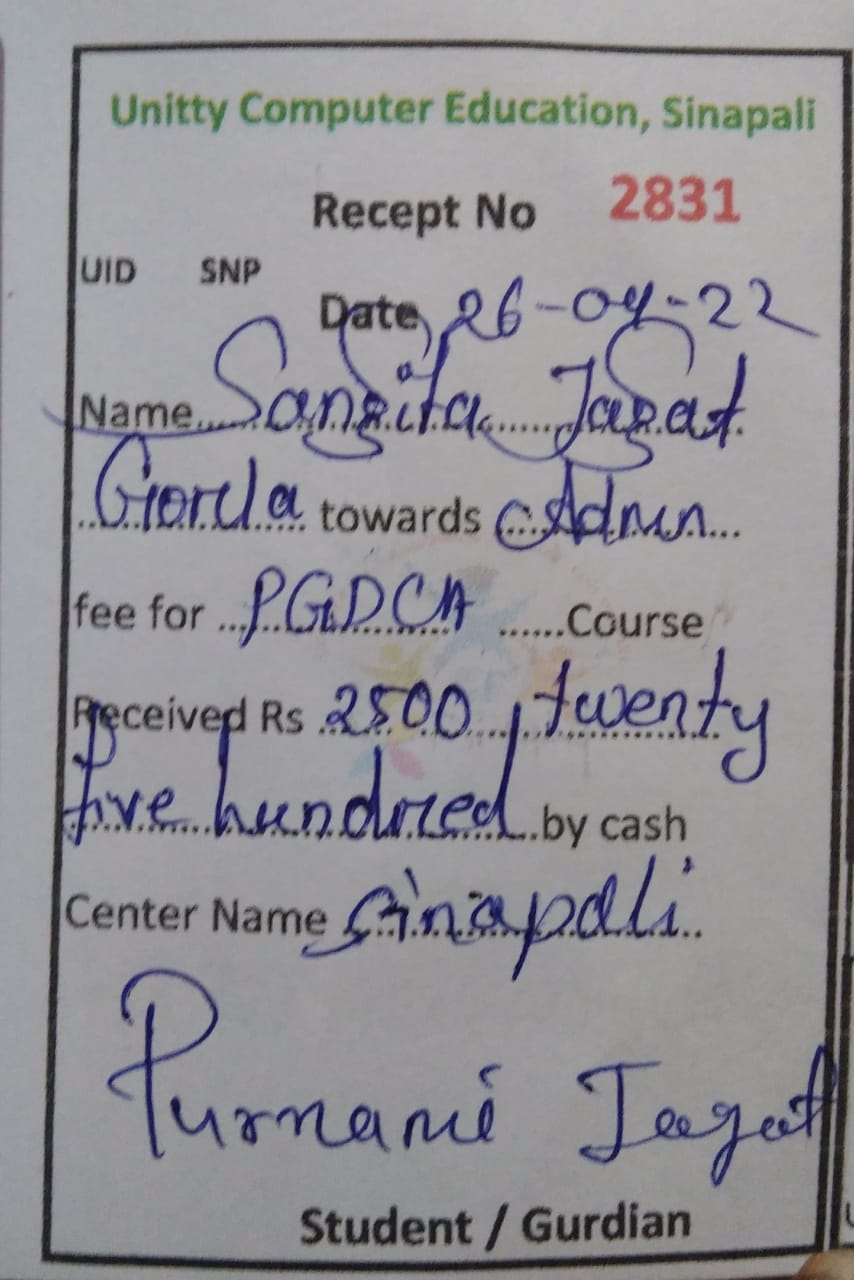 Unitty Computer Education, Sinapali
Recept No 2831
UID SNP
Date 26-04-22
Name Sangita Jagat
Gorla towards Admn
fee for PGDCA Course
Received Rs 2500, twenty
five hundred by cash
Center Name Sinapali
Purnami Jagat
Student / Gurdian